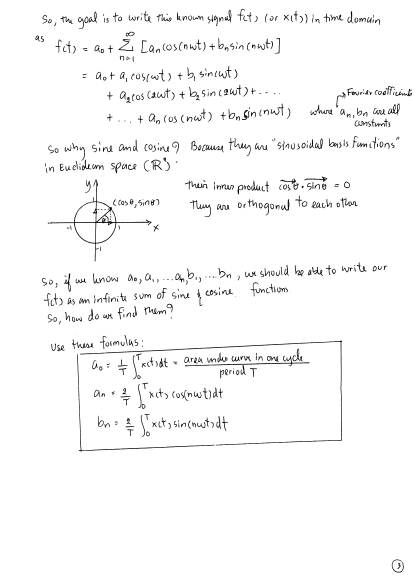 So, the goal is to write this known signal f(t) (or x(t)) in time domain
as f(t) = a₀ + ∑ₙ₌₁^∞ [aₙcos(nωt) + bₙsin(nωt)]
= a₀ + a₁cos(ωt) + b₁sin(ωt)
+ a₂cos(2ωt) + b₂sin(2ωt) + ....
→ Fourier coefficients
+ ... + aₙcos(nωt) + bₙsin(nωt) where aₙ, bₙ are all
constants
So why sine and cosine? Because they are "sinusoidal basis functions"
in Euclidean space (ℝ²).
y
1
(cosθ, sinθ)
θ
-1
1
x
-1
Their inner product cosθ · sinθ = 0
They are orthogonal to each other
So, if we know a₀, a₁, ...aₙ, b₁, ....bₙ, we should be able to write our
f(t) as an infinite sum of sine & cosine function
So, how do we find them?
Use these formulas:
a₀ = 1/T ∫₀ᵀ x(t)dt = area under curve in one cycle / period T
aₙ = 2/T ∫₀ᵀ x(t)cos(nωt)dt
bₙ = 2/T ∫₀ᵀ x(t)sin(nωt)dt
3